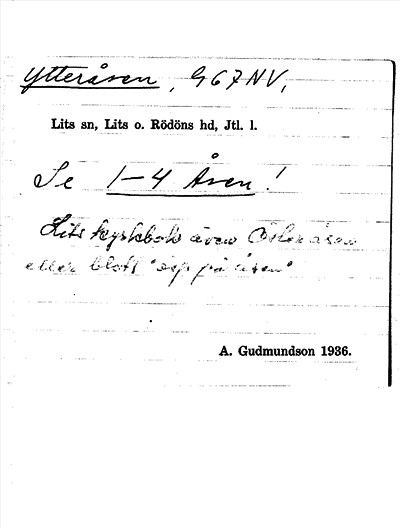 Ytteråsen, 967 NV,
Lits sn, Lits o. Rödöns hd, Jtl. l.
Se 1–4 Åsen!
Lits kyrkbok även Österåsen
eller blott "öst på åsen"
A. Gudmundson 1936.